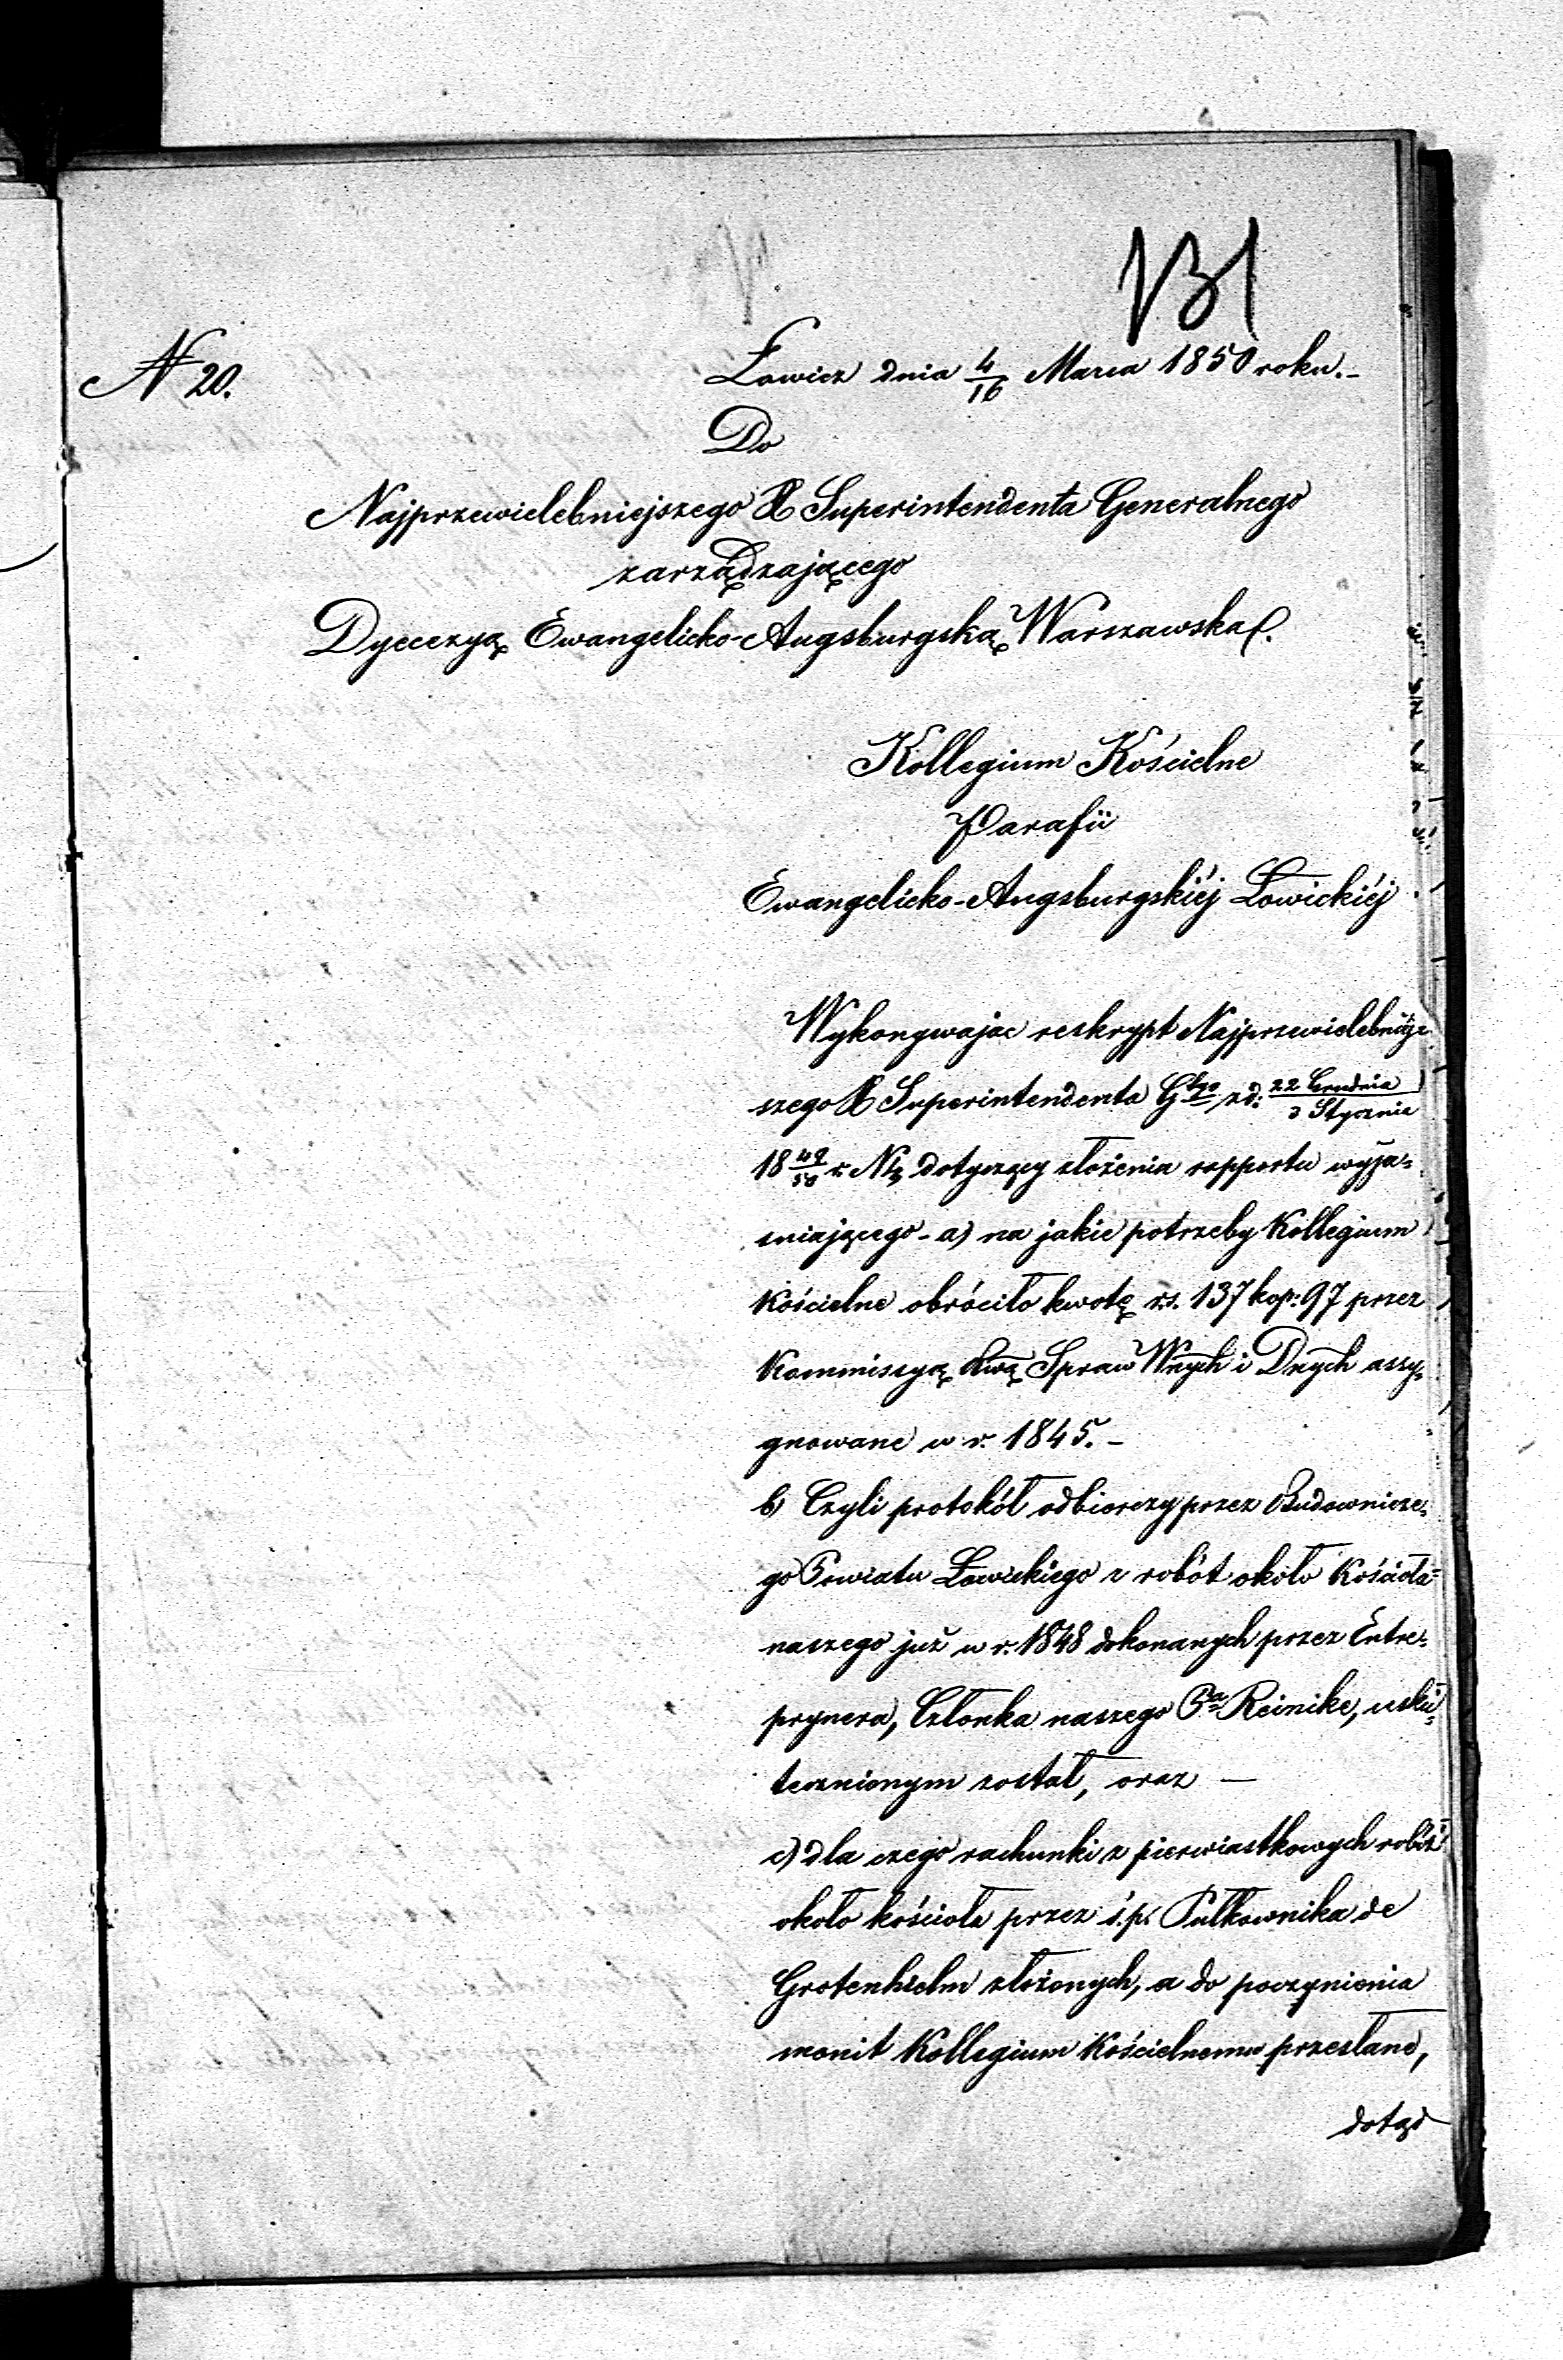 131
N 20.
Łowicz dnia 4/16 Marca 1850 roku.-
Do
Najprzewielebniejszego X Superintendenta Generalnego
zarządzającego
Dyecezyą Ewangelicko-Augsburgską Warszawską.
Kollegium Kościelne
Parafii
Ewangelicko-Augsburgskiéj Łowickiéj
Wykonywając reskrypt Najprzewielebniej=
szego X Superintendenta Glgo z d: 22 Grudnia / 3 Stycznia
18 49/50 r. N dotyczący złożenia rapportu wyja=
sniającego - a) na jakie potrzeby Kollegium
Kościelne obróciło kwotę rs. 137 kop: 97 przez
Kommissyą Rwą Spraw Wnych i Dnych assy=
gnowane w r. 1845.-
b) Czyli protokół odbiorczy przez Budownicze=
go Powiatu Łowickiego z robót około Kościoła
naszego już w r. 1848 dokonanych przez Entre=
prynera, Członka naszego Pa Reinike, usku=
tecznionym został, oraz —
c) dla czego rachunki z pierwiastkowych robót
około kościoła przez ś.p. Pułkownika de
Grotenhielm złożonych, a do poczynienia
monit Kollegium Kościelnemu przesłane,
dotąd